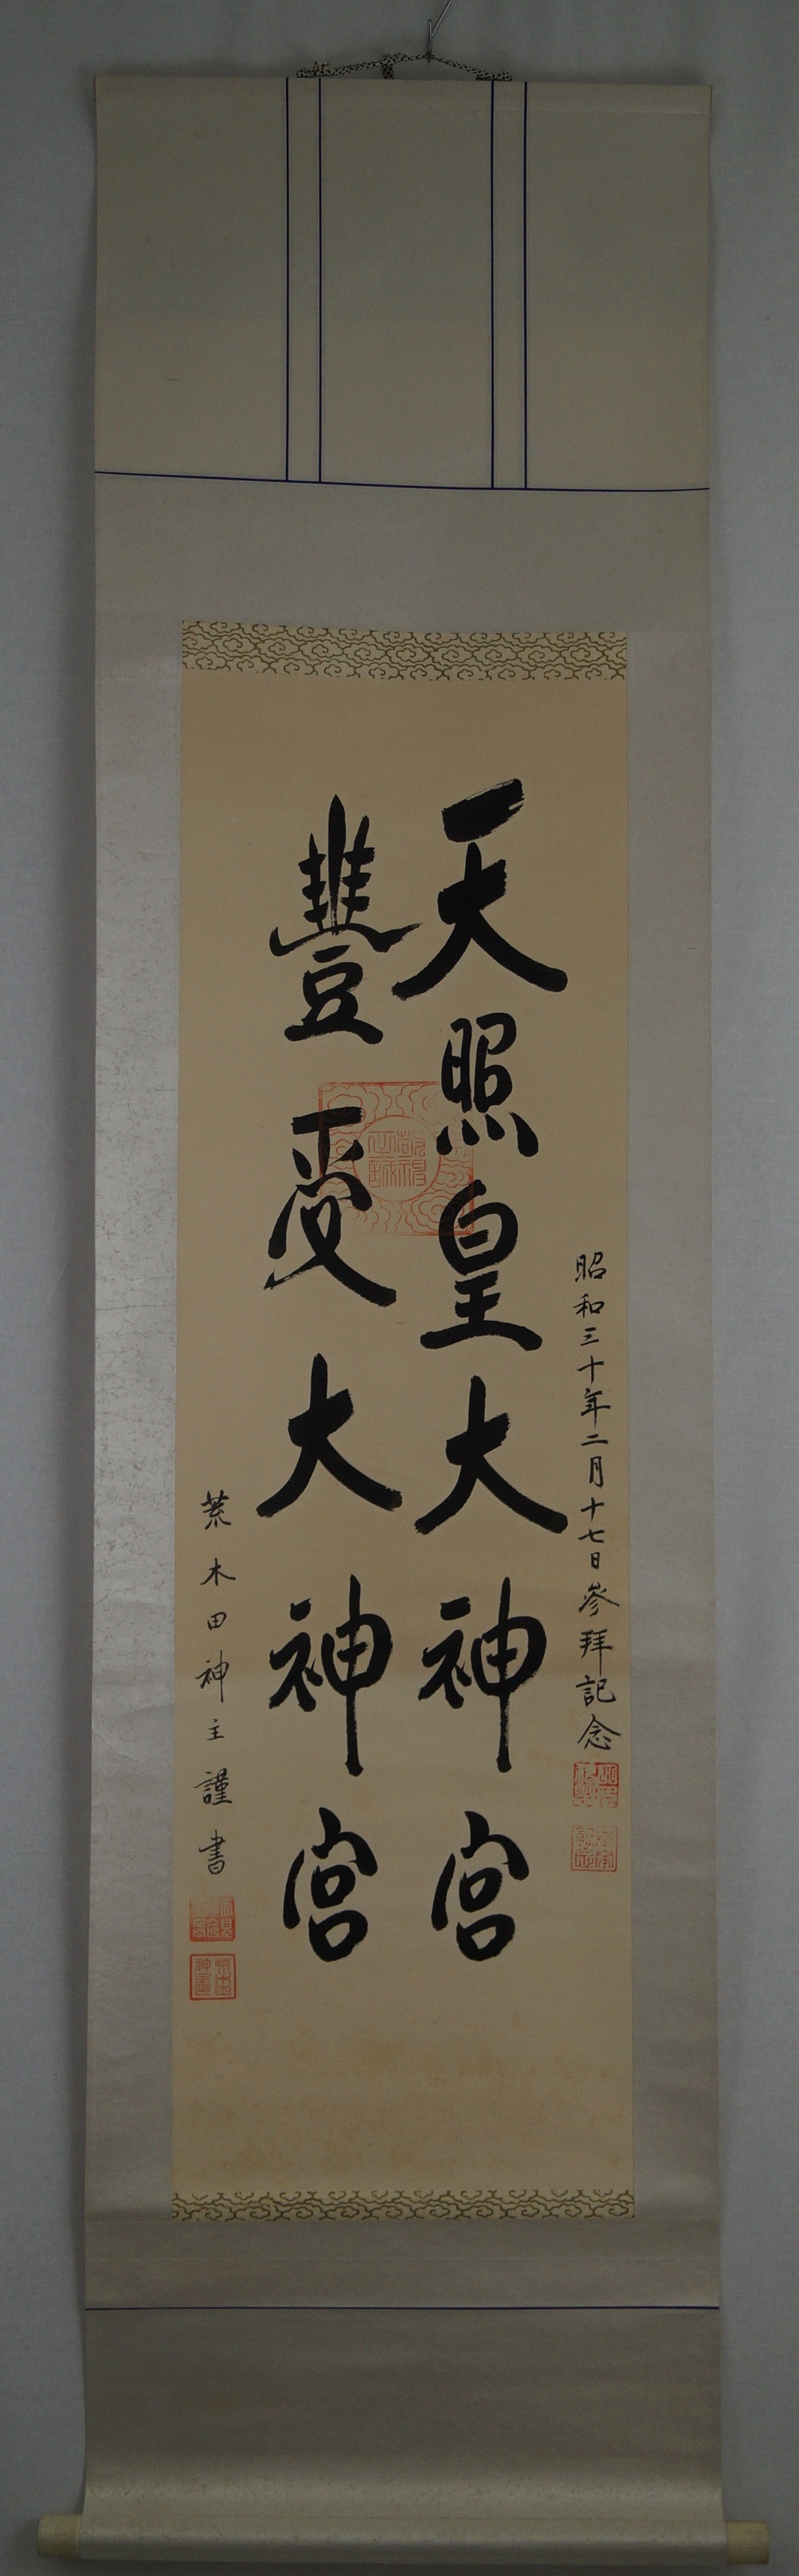 昭和三十年二月十七日參拜記念
天照皇大神宮
豐受大神宮
荒木田神主謹書